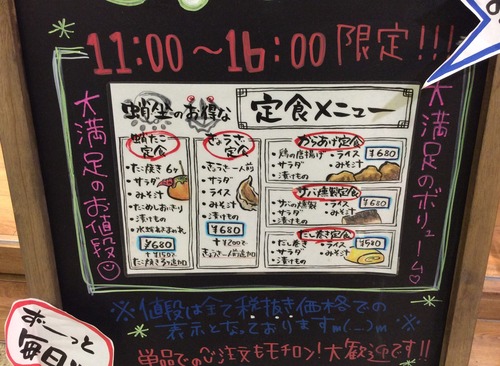 11:00～16:00 限定!!!
大満足のお値段
大満足のボリューム
蛸坐のお得な
定食メニュー
蛸たこ
定食
・たこ焼き 6ヶ
・サラダ
・みそ汁
・たこめしおにぎり
・漬けもの
¥680
+¥150で
たこ焼き3ヶ追加
ぎょうざ
定食
・ぎょうざ一人前
・サラダ
・ライス
・みそ汁
・漬けもの
¥680
+¥200で
ぎょうざ一人前追加
からあげ定食
・鶏の唐揚げ ・ライス
・サラダ ・みそ汁
・漬けもの
¥680
サバ燻製定食
・サバの燻製 ・ライス
・サラダ ・みそ汁
・漬けもの
¥680
だし巻き定食
・だし巻き ・ライス
・サラダ ・みそ汁
・漬けもの
¥580
※値段は全て税抜き価格での
表示となっておりますm(__)m※
単品でのご注文もモチロン!大歓迎です!!
お――っと
毎日